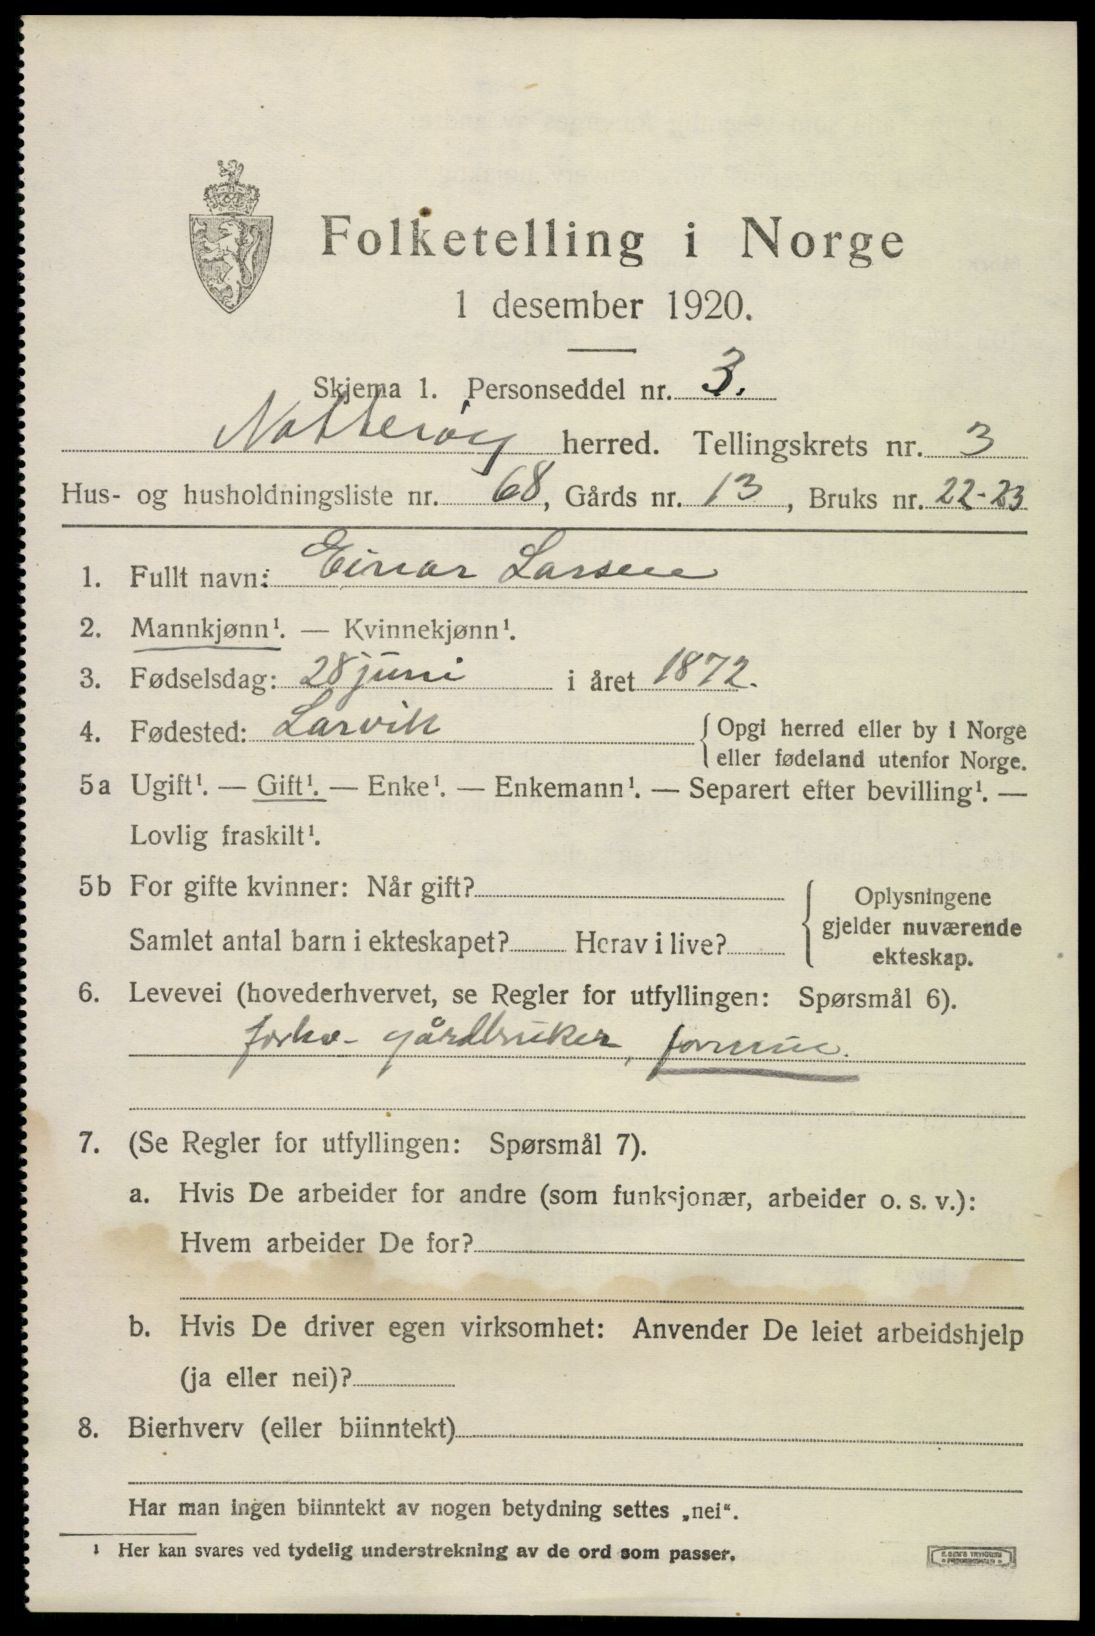 Folketelling i Norge
1 desember 1920.
Skjema 1. Personseddel nr. 3.
Nøtterøy herred. Tellingskrets nr. 3
Hus- og husholdningsliste nr. 68, Gårds nr. 13, Bruks nr. 22-23
1. Fullt navn: Einar Larsen
2. Mannkjønn¹. — Kvinnekjønn¹.
3. Fødselsdag: 28 juni i året 1872.
4. Fødested: Larvik { Opgi herred eller by i Norge
eller fødeland utenfor Norge.
5a Ugift¹. — Gift¹. — Enke¹. — Enkemann¹. — Separert efter bevilling¹. —
Lovlig fraskilt¹.
5b For gifte kvinner: Når gift?
Samlet antal barn i ekteskapet? Herav i live?
{ Oplysningene
gjelder nuværende
ekteskap.
6. Levevei (hovederhvervet, se Regler for utfyllingen: Spørsmål 6).
forhv. gårdbruker, formue.
7. (Se Regler for utfyllingen: Spørsmål 7).
a. Hvis De arbeider for andre (som funksjonær, arbeider o. s. v.):
Hvem arbeider De for?
b. Hvis De driver egen virksomhet: Anvender De leiet arbeidshjelp
(ja eller nei)?
8. Bierhverv (eller biinntekt)
Har man ingen biinntekt av nogen betydning settes „nei“.
¹ Her kan svares ved tydelig understrekning av de ord som passer.